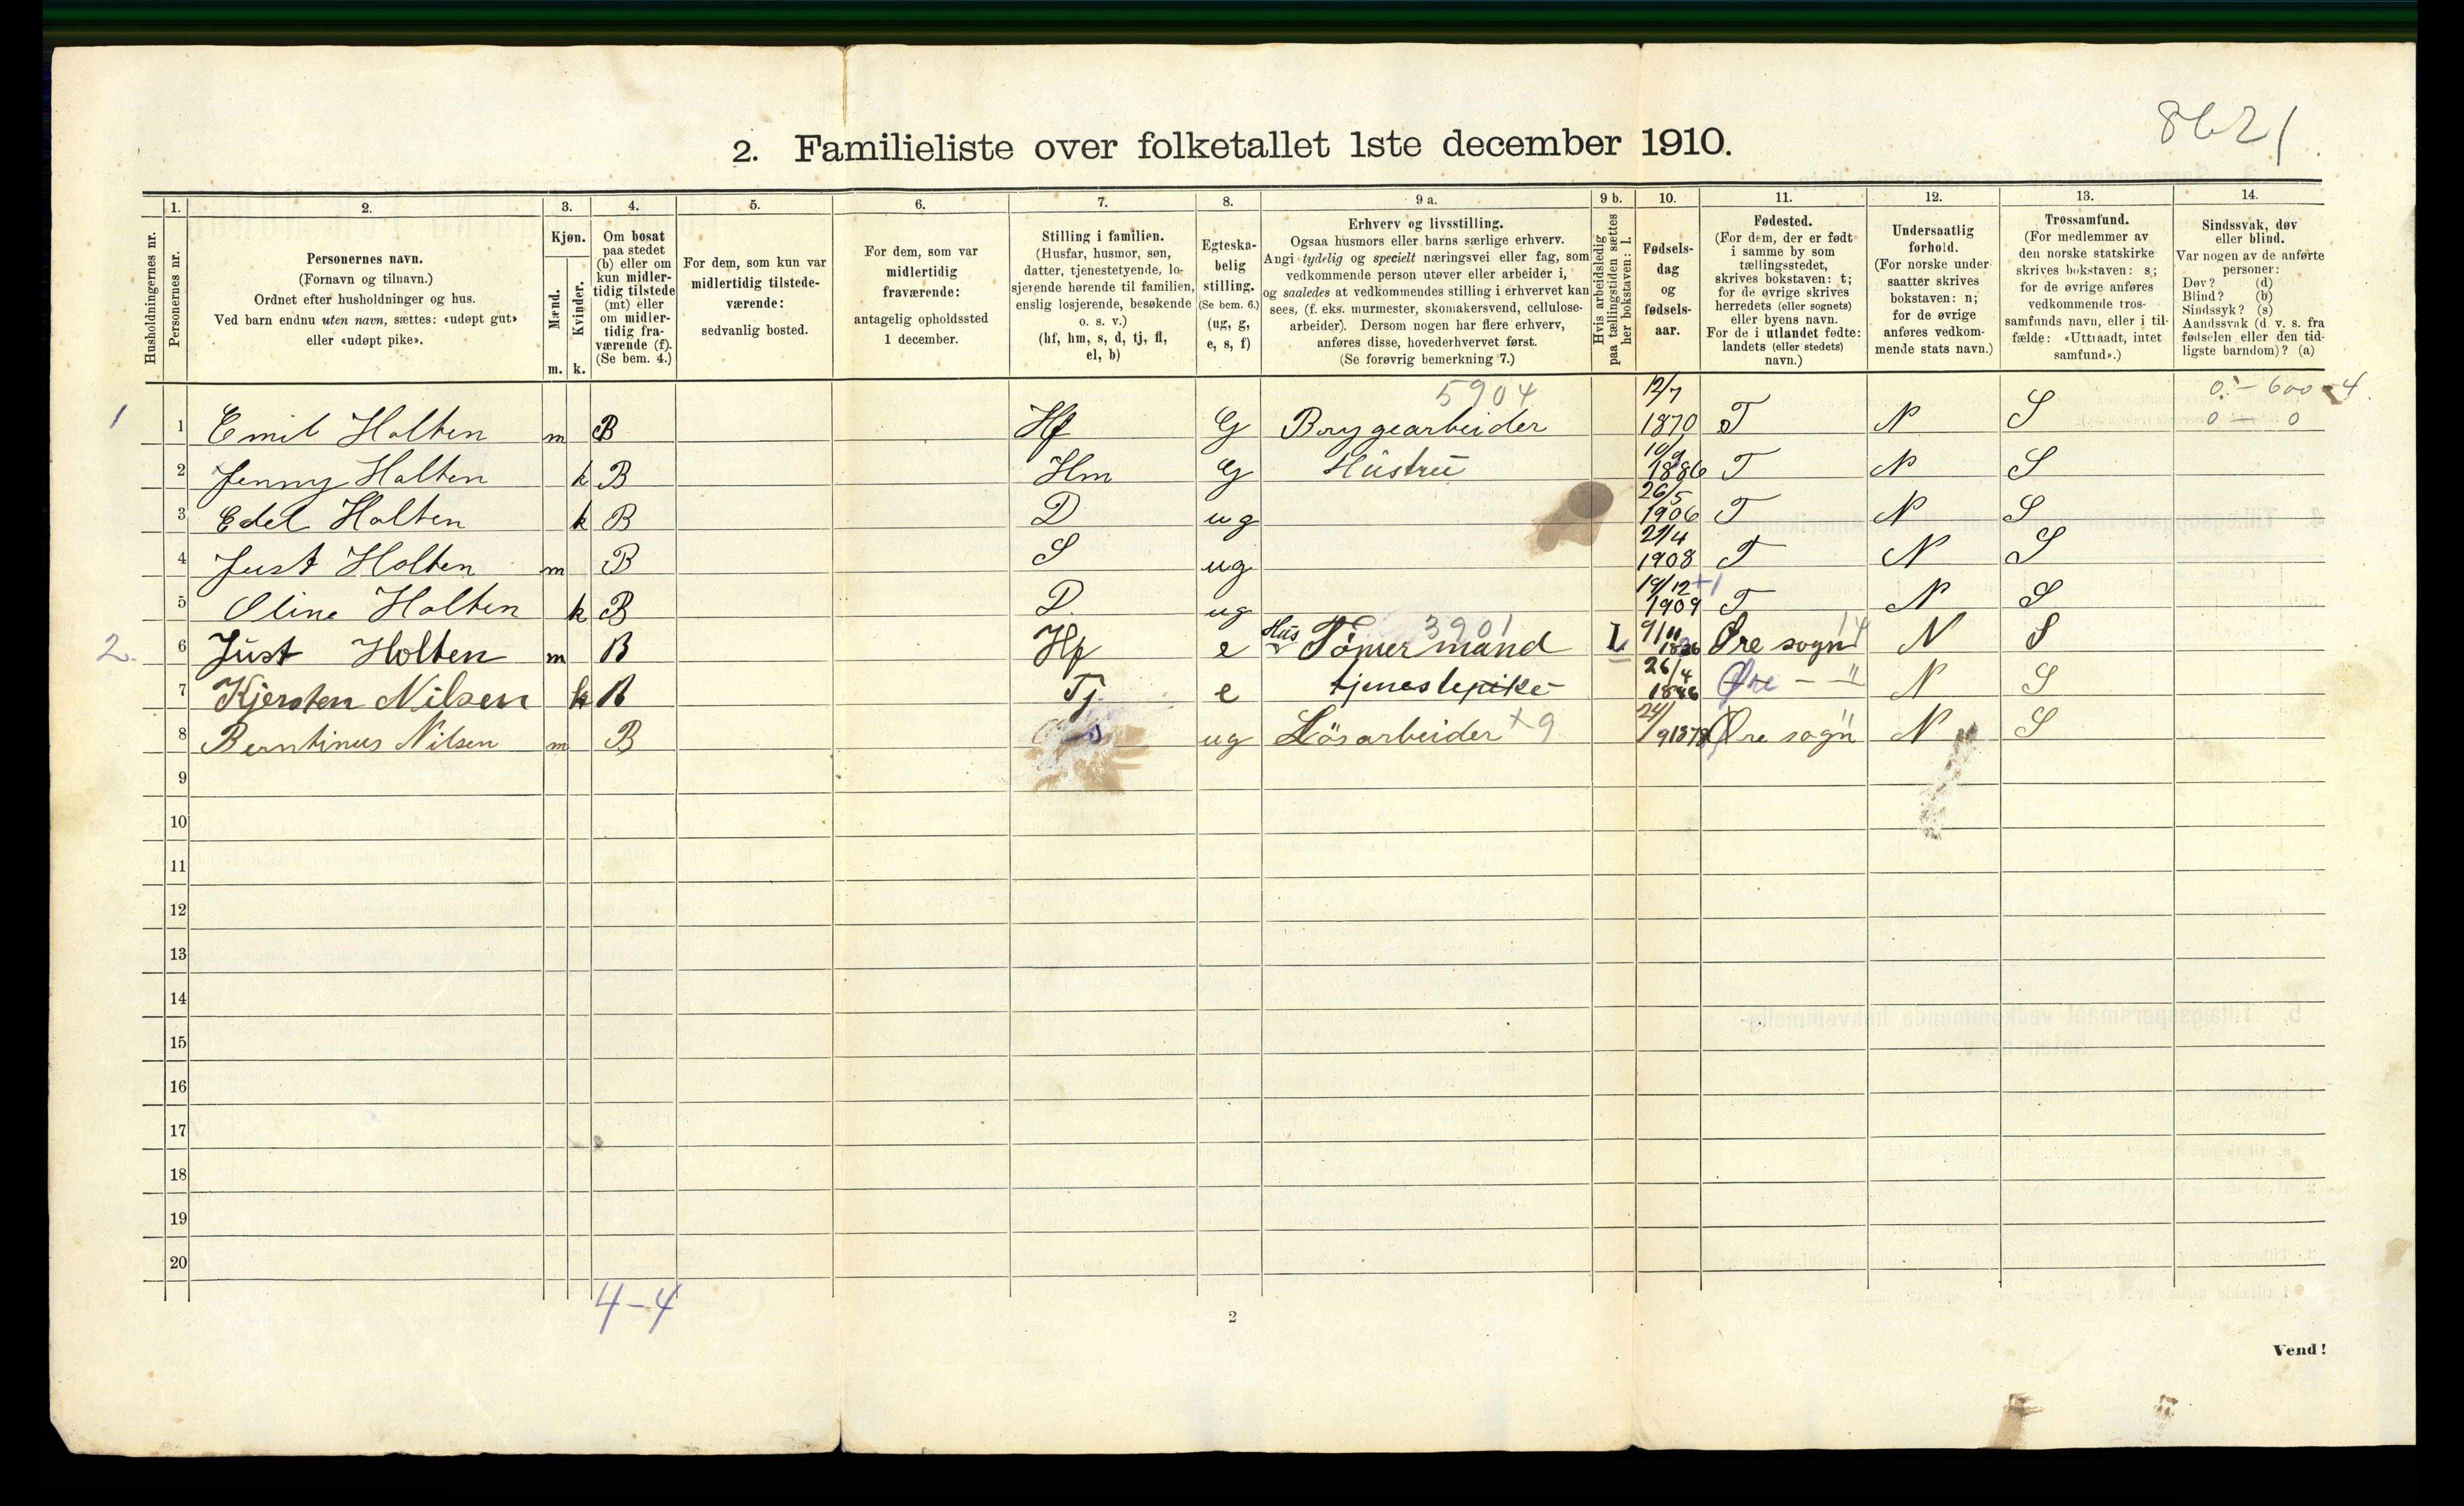 8621
2. Familieliste over folketallet 1ste december 1910.
1. 2. 3. 4. 5. 6. 7. 8. 9 a. 9 b. 10. 11. 12. 13. 14.
Husholdningernes nr.
Personernes nr.
Personernes navn.
(Fornavn og tilnavn.)
Ordnet efter husholdninger og hus.
Ved barn endnu uten navn, sættes: «udøpt gut»
eller «udøpt pike».
Kjøn.
Mænd.
Kvinder.
m. k.
Om bosat
paa stedet
(b) eller om
kun midler-
tidig tilstede
(mt) eller
om midler-
tidig fra-
værende (f).
(Se bem. 4.)
For dem, som kun var
midlertidig tilstede-
værende:
sedvanlig bosted.
For dem, som var
midlertidig
fraværende:
antagelig opholdssted
1 december.
Stilling i familien.
(Husfar, husmor, søn,
datter, tjenestetyende, lo-
sjerende hørende til familien,
enslig losjerende, besøkende
o. s. v.)
(hf, hm, s, d, tj, fl,
el, b)
Egteska-
belig
stilling.
(Se bem. 6.)
(ug, g,
e, s, f)
Erhverv og livsstilling.
Ogsaa husmors eller barns særlige erhverv.
Angi tydelig og specielt næringsvei eller fag, som
vedkommende person utøver eller arbeider i,
og saaledes at vedkommendes stilling i erhvervet kan
sees, (f. eks. murmester, skomakersvend, cellulose-
arbeider). Dersom nogen har flere erhverv,
anføres disse, hovederhvervet først.
(Se forøvrig bemerkning 7.)
Hvis arbeidsledig
paa tællingstiden sættes
her bokstaven: l.
Fødsels-
dag
og
fødsels-
aar.
Fødested.
(For dem, der er født
i samme by som
tællingsstedet,
skrives bokstaven: t;
for de øvrige skrives
herredets (eller sognets)
eller byens navn.
For de i utlandet fødte:
landets (eller stedets)
navn.)
Undersaatlig
forhold.
(For norske under-
saatter skrives
bokstaven: n;
for de øvrige
anføres vedkom-
mende stats navn.)
Trossamfund.
(For medlemmer av
den norske statskirke
skrives bokstaven: s;
for de øvrige anføres
vedkommende tros-
samfunds navn, eller i til-
fælde: «Uttraadt, intet
samfund».)
Sindssvak, døv
eller blind.
Var nogen av de anførte
personer:
Døv? (d)
Blind? (b)
Sindssyk? (s)
Aandssvak (d. v. s. fra
fødselen eller den tid-
ligste barndom)? (a)
5904 12/7 0.- 600-4.
1 1 Emil Holten m B Hf G Brygearbeider 1870 T N S 0 — 0
2 Jenny Holten k B Hm G Hüstrü 1886 T N S
26/5
3 Edel Holten k B D ug 1906 T N S
21/4
4 Just Holten m B S ug 1908 T N S
19/12 +1
5 Oline Holten k B D. ug 1909 T N S
3901 9/11 14
2. 6 Just Holten m B Hf e Hüs Tömermand L 1836 Øre sogn N S
26/4
7 Kjersten Nilsen k B Tj. e tjenestepike 1846 Øre — " N S
24/
8 Berntinus Nilsen m B s ug Lösarbeider +9 /9 1878 Øre sogn N S
9
10
11
12
13
14
15
16
17
18
19
20
4–4
2
Vend!